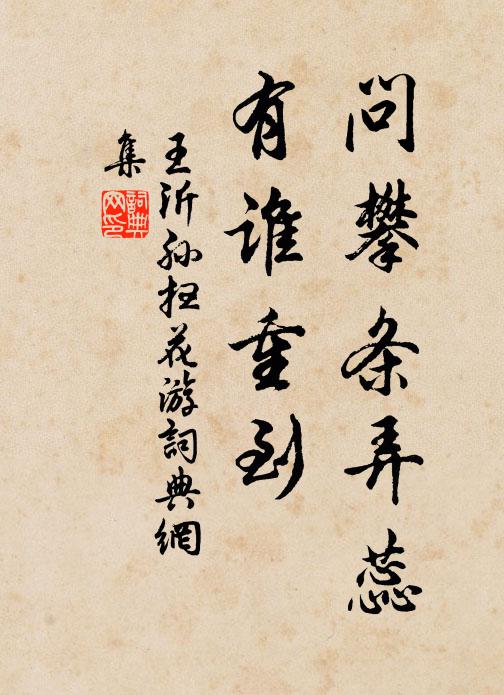 问攀条弄蕊
有谁重到
王沂孙扫花游词典網
集
詞典网印